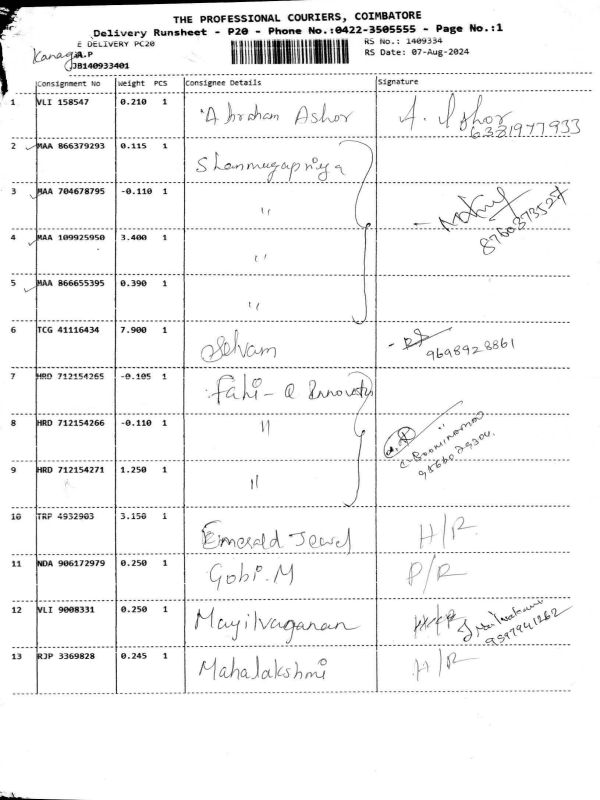 THE PROFESSIONAL COURIERS, COIMBATORE
Delivery Runsheet - P20 - Phone No.:0422-3505555 - Page No.:1
E DELIVERY PC20
RS No.: 1409334
Kanaga A.P
RS Date: 07-Aug-2024
JB140933401
Consignment No Weight PCS Consignee Details Signature
1 VLI 158547 0.210 1 Abraham Ashor A. Ishor
6381977933
2 MAA 866379293 0.115 1 Shanmugapriya
3 MAA 704678795 -0.110 1 "
8760873527
4 MAA 109925950 3.400 1 "
5 MAA 866655395 0.390 1 "
6 TCG 41116434 7.900 1 Selvam
9698928861
7 HRD 712154265 -0.105 1 Fahi - Q Innovative
8 HRD 712154266 -0.110 1 "
9 HRD 712154271 1.250 1 "
10 TRP 4932903 3.150 1 Emerald Jewel H/R
11 NDA 906172979 0.250 1 Gobi.M P/R
12 VLI 9008331 0.250 1 Mayilvaganan
9597941262
13 RJP 3369828 0.245 1 Mahalakshmi H/R